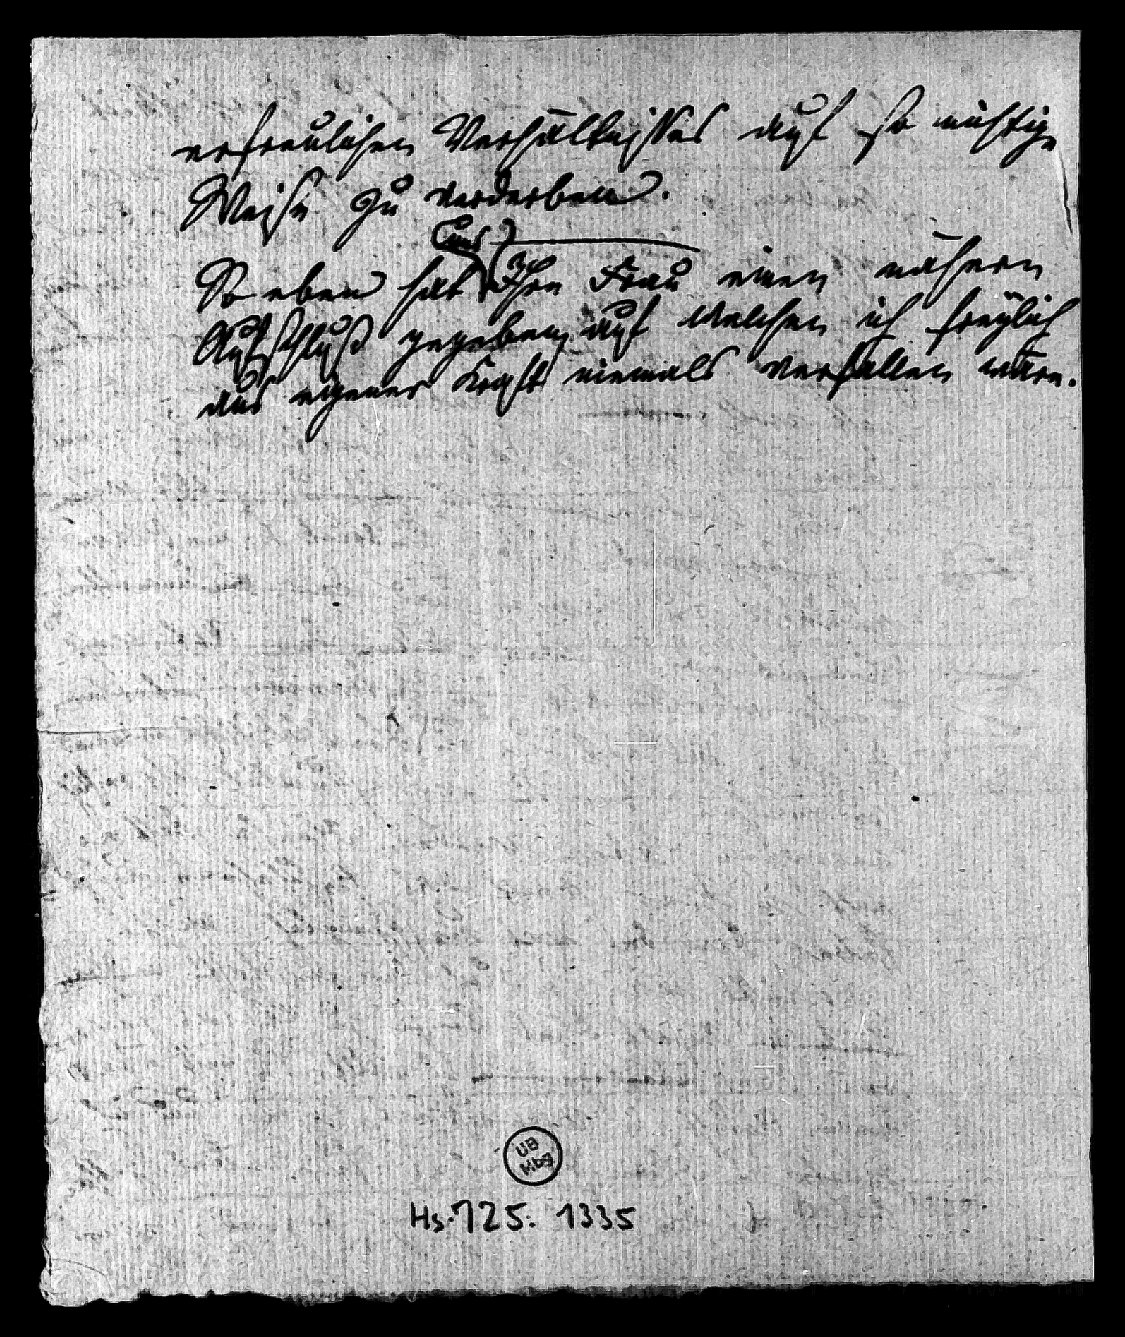 erfreulichen Verhältnisses auf so nichtige
Weise zu verderben.
So eben hat Ihre Frau einen nähern
Aufschluß gegeben, auf welchen ich freylich
aus eigener Kraft niemals verfallen wäre.
UB
Mbg
Hs. 725: 1335